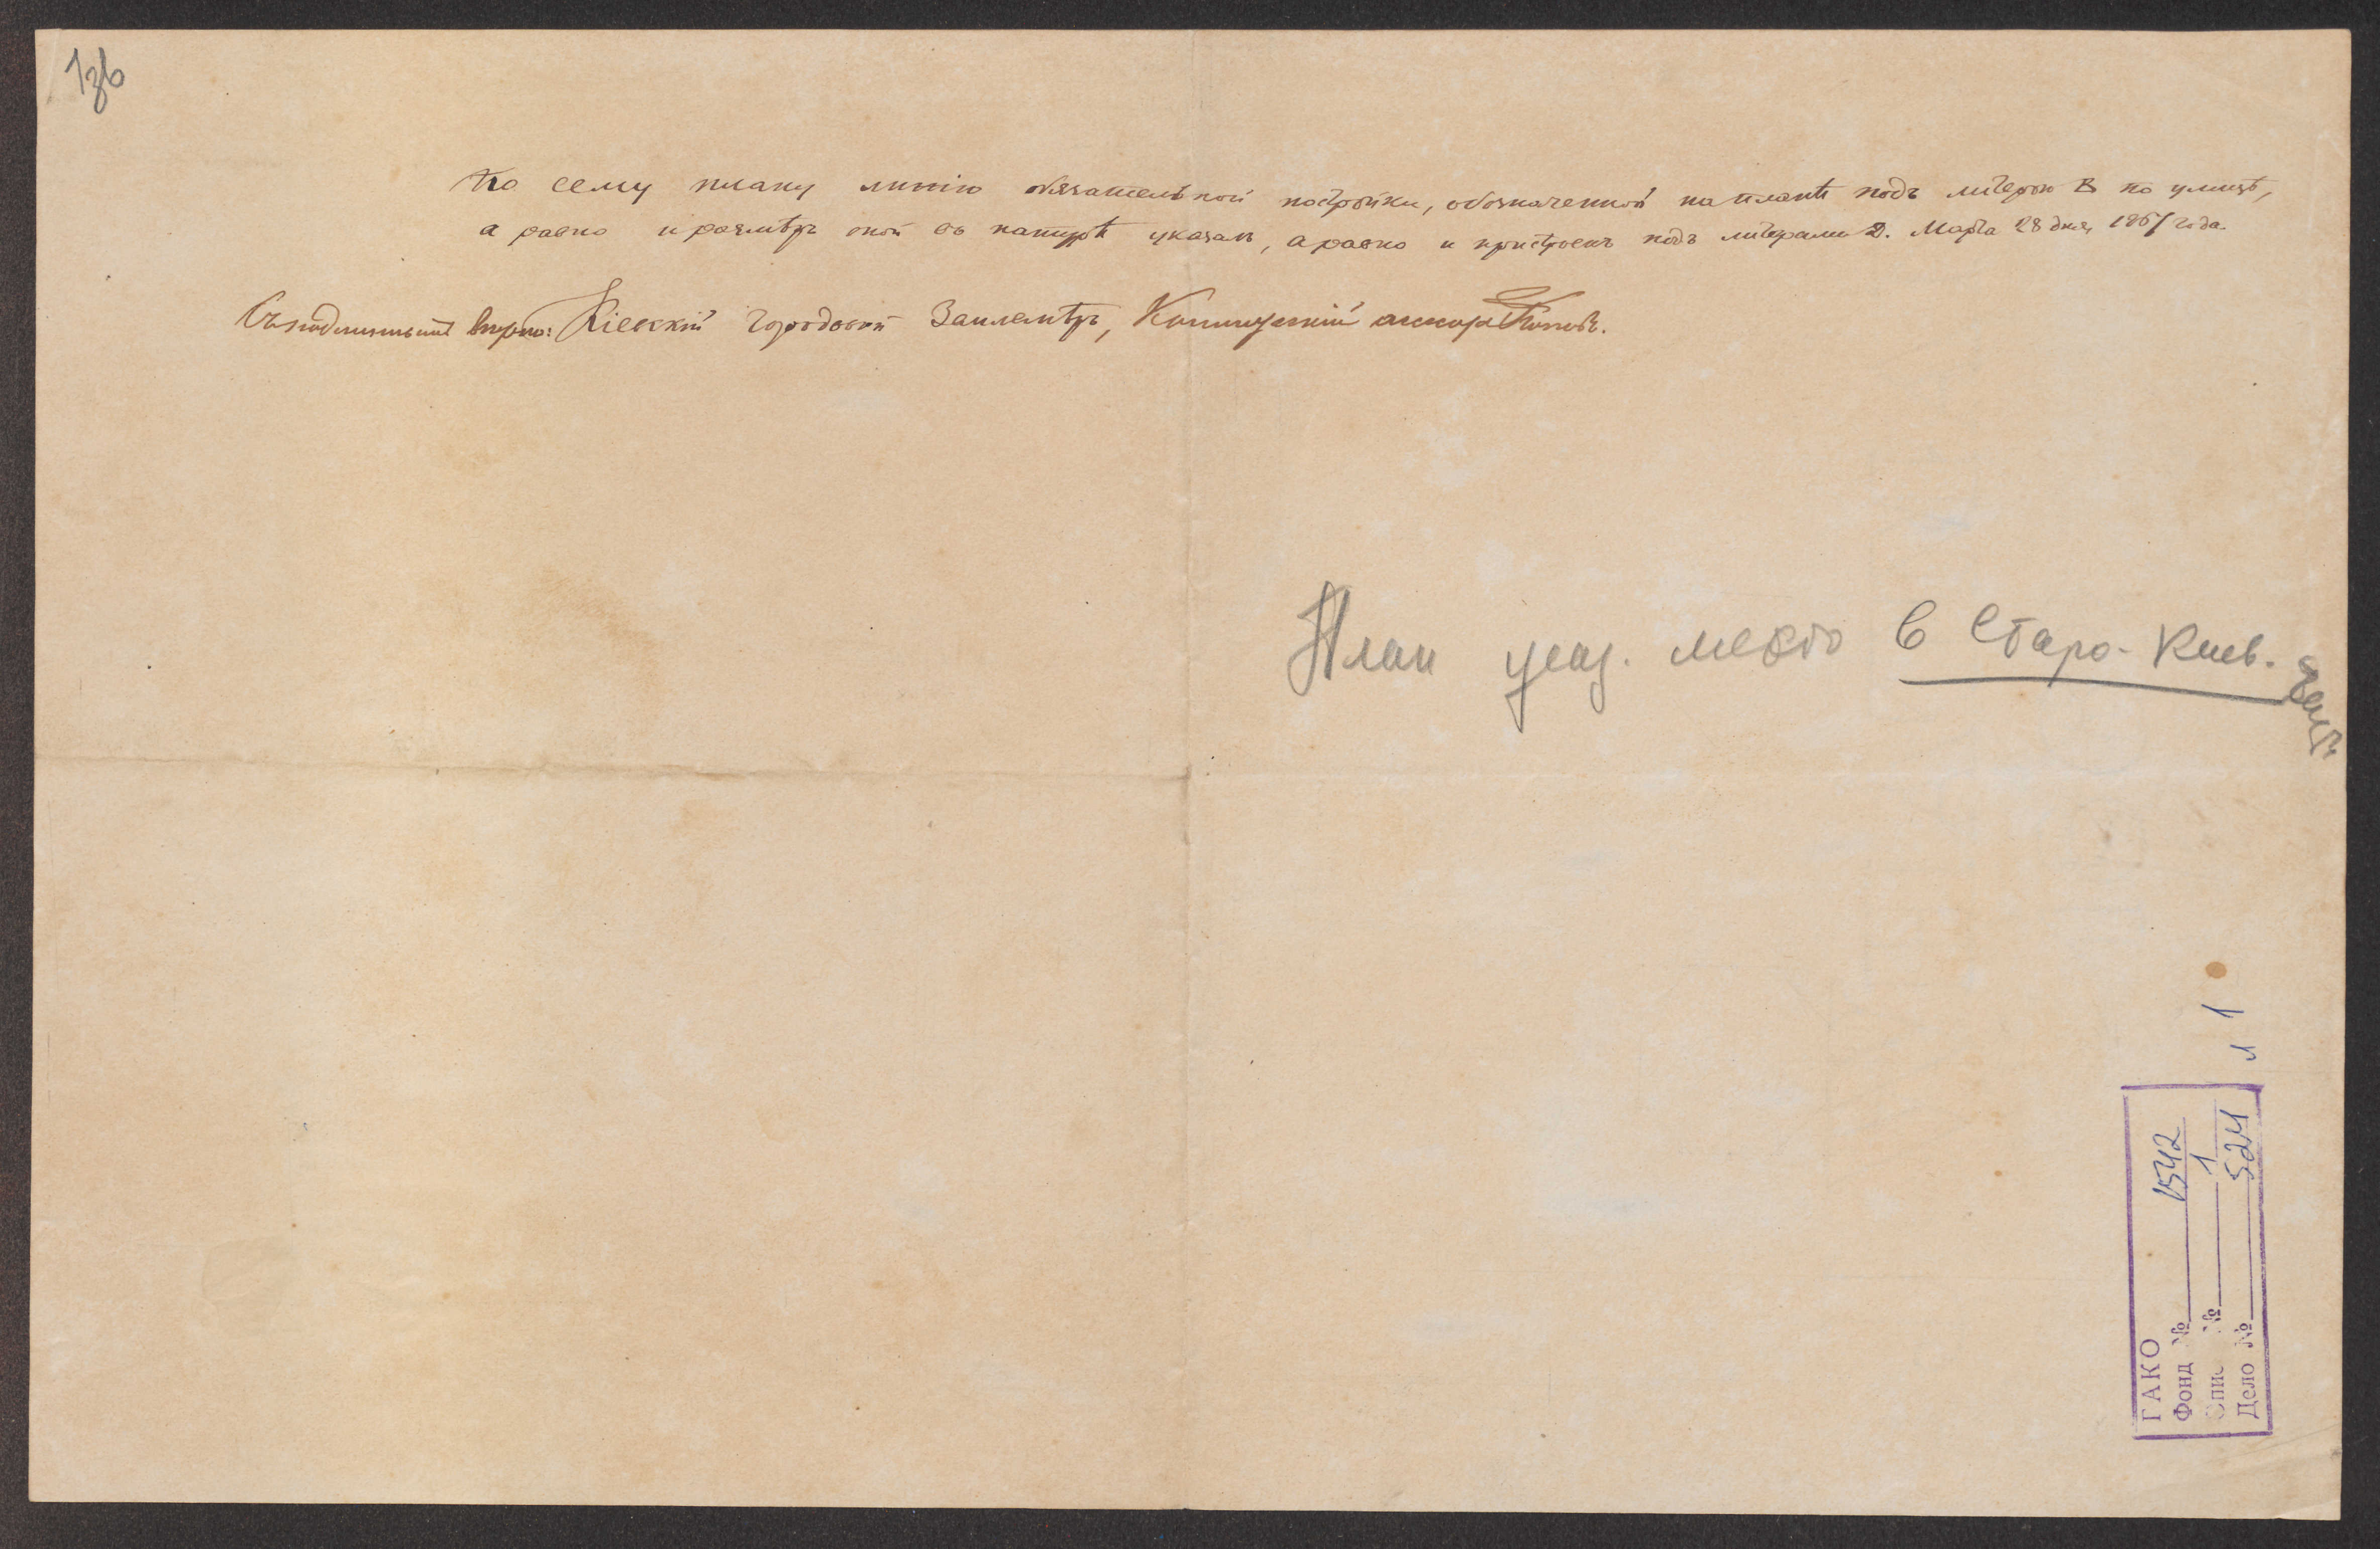 1зв
По сему плану линію обязательной постройки, обозначенной на планѣ подъ литерою В по улицѣ,
а равно и размѣръ оной въ натурѣ указалъ, а равно и пристроекъ подъ литерами Д. Марта 28 дня 1867 года.
Съ подлиннымъ вѣрно: Кіевскій Городовой Землемѣръ, Коллежскій ассесоръ
План усад. место в Старо-Киев.
части
л 1
ГАКО
Фонд № 1542
Опис № 1
Дело № 524